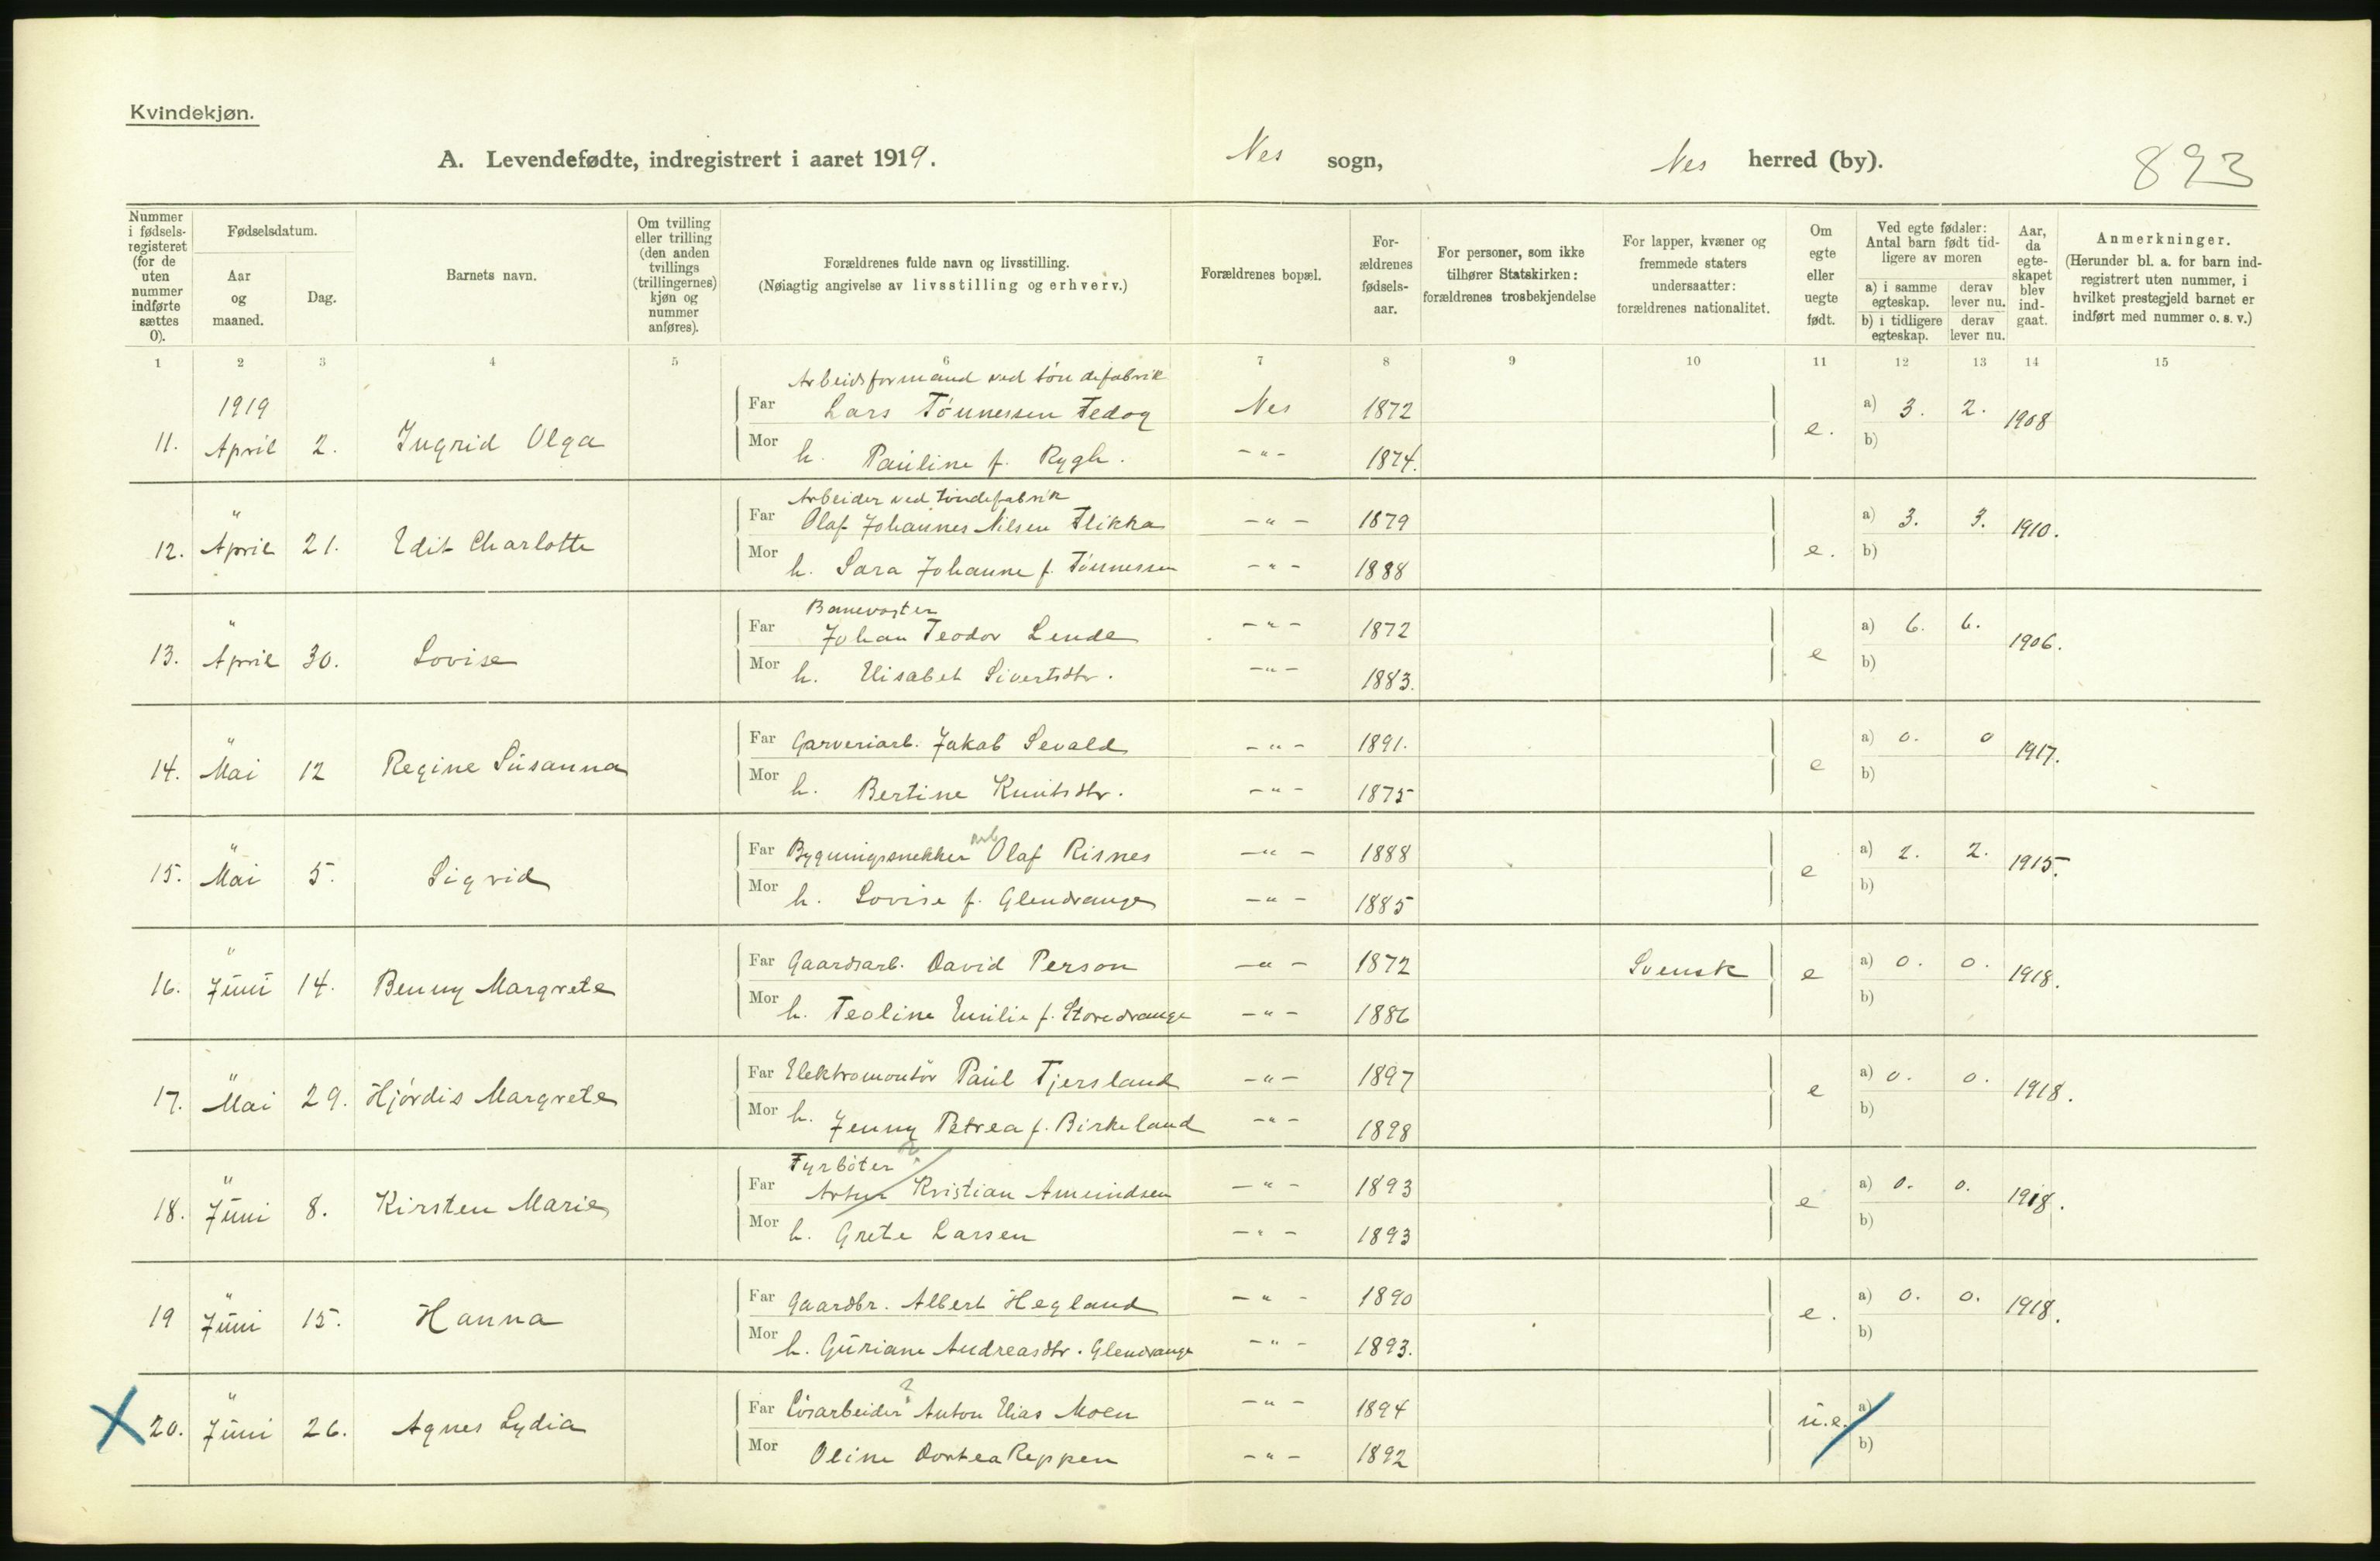 Kvindekjøn.
A. Levendefødte, indregistrert i aaret 1919. Nes sogn, Nes herred (by). 893
Nummer i fødsels-registeret (for de uten nummer indførte sættes 0).
Fødselsdatum.
Aar og maaned.
Dag.
Barnets navn.
Om tvilling eller trilling (den anden tvillings (trillingernes) kjøn og nummer anføres).
Forældrenes fulde navn og livsstilling.
(Nøiagtig angivelse av livsstilling og erhverv.)
Forældrenes bopæl.
For-ældrenes fødsels-aar.
For personer, som ikke tilhører Statskirken: forældrenes trosbekjendelse
For lapper, kvæner og fremmede staters undersaatter: forældrenes nationalitet.
Om egte eller uegte født.
Ved egte fødsler: Antal barn født tid-ligere av moren
a) i samme egteskap. derav lever nu.
b) i tidligere egteskap. derav lever nu.
Aar, da egte-skapet blev ind-gaat.
Anmerkninger.
(Herunder bl. a. for barn ind-registrert uten nummer, i hvilket prestegjeld barnet er indført med nummer o. s. v.)
1 2 3 4 5 6 7 8 9 10 11 12 13 14 15
Arbeidsformand ved tøndefabrik
1919 Far Lars Tønnessen Fedog Nes 1872 a) 3. 2. 1908
11. April 2. Ingrid Olga Mor h. Pauline f. Rygh. -"- 1874. e. b)
Arbeider ved tøndefabrik
" Far Olaf Johannes Nilsen Flikka -"- 1879 a) 3. 3. 1910.
12. April 21. Edit Charlotte Mor h. Sara Johanne f. Tønnessen -"- 1888 e. b)
Banevogter
" Far Johan Teodor Lende -"- 1872 a) 6. 6. 1906.
13. April 30. Lovise Mor h. Elisabet Sivertsdtr. -"- 1883. e b)
" Far Garveriarb. Jakob Sevald -"- 1891. a) 0. 0 1917.
14. Mai 12 Regine Susanna Mor h. Bertine Knutsdtr. -"- 1875 e b)
arb
" Far Bygningssnekker Olaf Risnes -"- 1888 a) 2. 2. 1915.
15. Mai 5. Sigrid Mor h. Lovise f. Glendrange -"- 1885 e b)
" Far Gaardsarb. David Person -"- 1872 Svensk e a) 0. 0. 1918.
16. Juni 14. Benny Margrete Mor h. Teoline Emilie f. Storedrange -"- 1886 b)
" Far Elektromontør Paul Tjersland -"- 1897 a) 0. 0. 1918.
17. Mai 29. Hjørdis Margrete Mor h. Jenny Petrea f. Birkeland -"- 1898 e b)
Fyrbøter ?
" Far Artur Kristian Amundsen -"- 1893 a) 0. 0. 1918.
18. Juni 8. Kirsten Marie Mor h. Grete Larsen -"- 1893 e b)
" Far Gaardbr. Albert Hegland -"- 1890 a) 0. 0. 1918.
19 Juni 15. Hanna Mor h. Guriane Andreasdtr. Glendrange -"- 1893. e. b)
?
" Far Løsarbeider Anton Elias Moen -"- 1894 a)
X 20. Juni 26. Agnes Lydia Mor Oline Dortea Reppen -"- 1892 u.e. b)